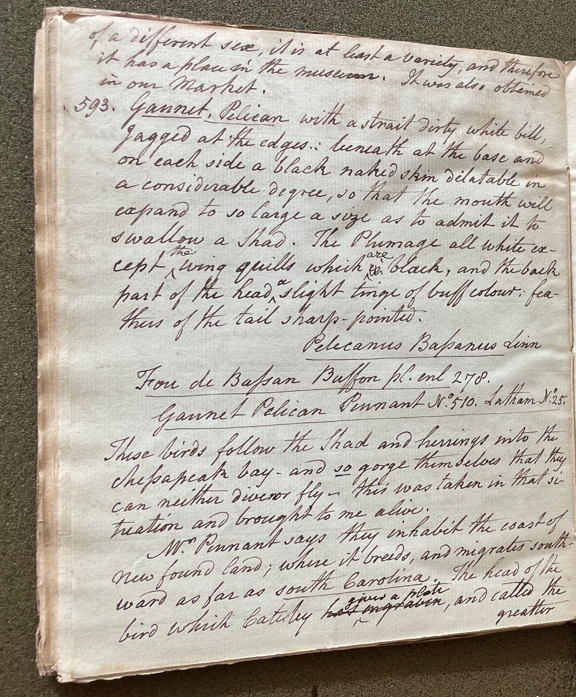 of a different sex, it is at least a variety, and therefore
it has a place in the museum. It was also obtained
in our Market.
593. Gannet. Pelican with a strait dirty white bill,
Jagged at the edges: beneath at the base and
on each side a black naked skin dilatable in
a considerable degree, so that the mouth will
expand to so large a size as to admit it to
swallow a Shad. The Plumage all white ex-
cept the wing quills which are black, and the back
part of the head a slight tinge of buff colour: fea-
thers of the tail sharp-pointed.
Pelecanus Bassanus Linn
Fou de Bassan Buffon pl. enl 278.
Gannet Pelican Pennant No. 510. Latham No. 25.
These birds follow the Shad and herrings into the
chesapeak bay - and so gorge themselves that they
can neither dive nor fly - this was taken in that si-
tuation and brought to me alive.
Mr. Pennant says they inhabit the coast of
new found land; where it breeds, and migrates south-
ward as far as south Carolina. The head of the
bird which Catesby gives a plate, and called the
greatter